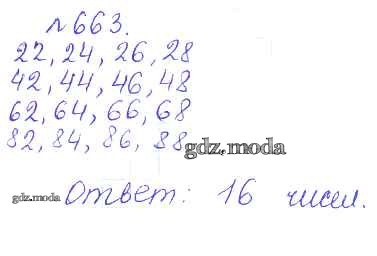 №663.
22, 24, 26, 28
42, 44, 46, 48
62, 64, 66, 68
82, 84, 86, 88
gdz.moda
gdz.moda Ответ: 16 чисел.